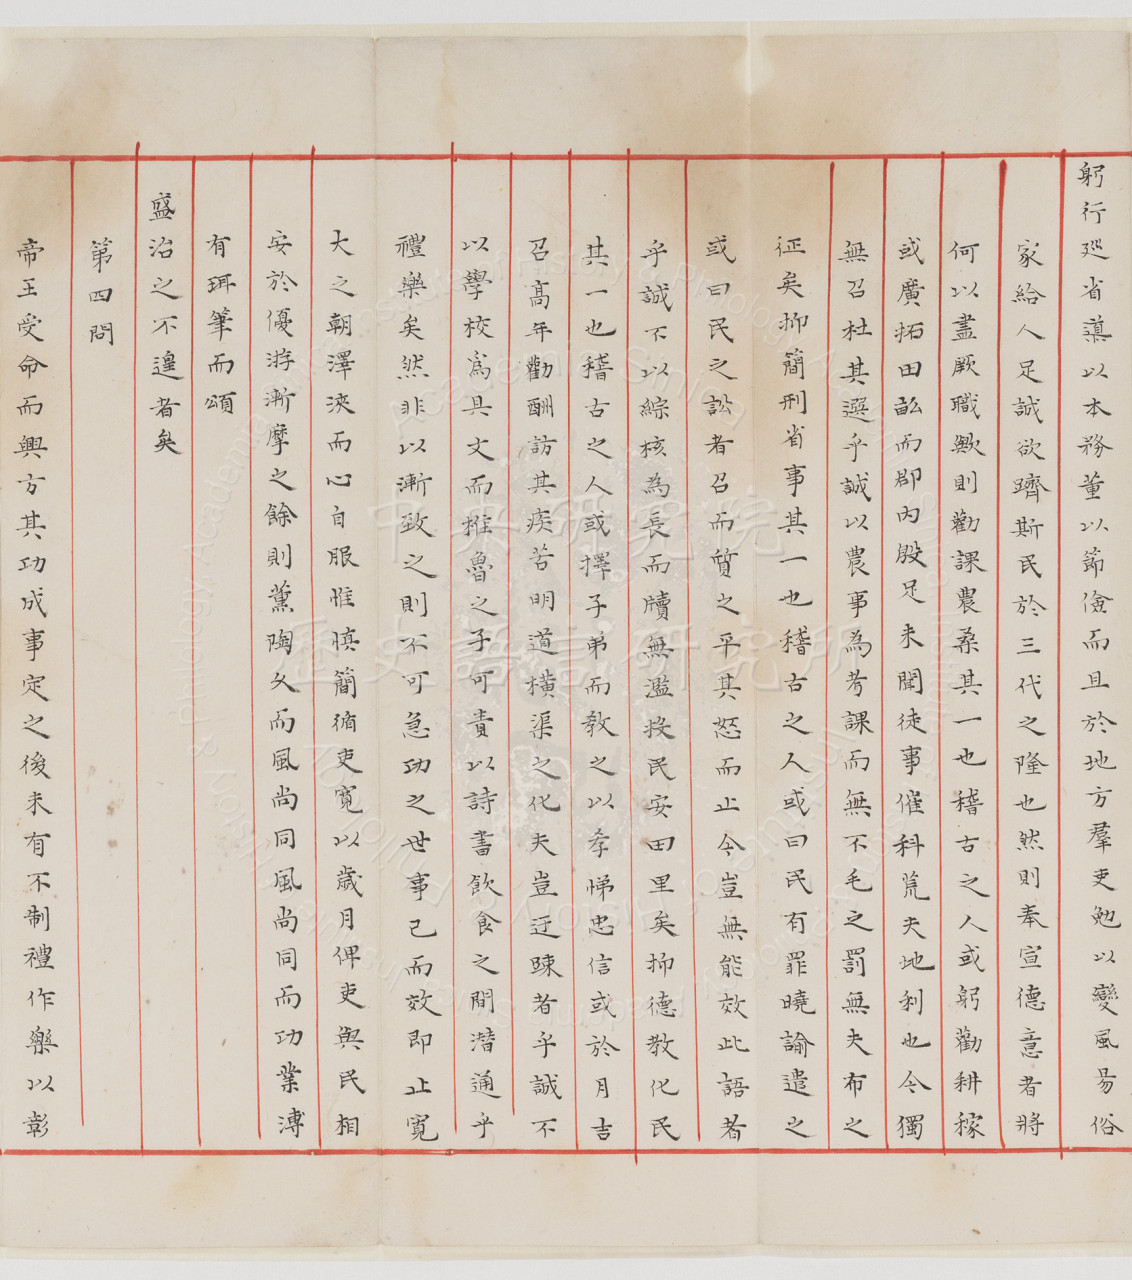 躬行廵省導以本務董以節儉而且於地方羣吏勉以變風昜俗
家給人足誠欲躋斯民於三代之隆也然則奉宣德意者將
何以盡厥職歟則勸課農桑其一也稽古之人或躬勸耕稼
或廣拓田畝而郡內殷足未聞徒事催科荒夫地利也今獨
無召杜其選乎誠以農事為考課而無不毛之罰無夫布之
征矣抑簡刑省事其一也稽古之人或曰民有罪曉諭遣之
或曰民之訟者召而質之平其怒而止今豈無能效此語者
乎誠不以綜核為長而牘無濫投民安田里矣抑德教化民
其一也稽古之人或擇子弟而教之以孝悌忠信或於月吉
召高年勸酬訪其疾苦明道橫渠之化夫豈迂疎者乎誠不
以學校爲具文而椎魯之子可責以詩書飲食之間潛通乎
禮樂矣然非以漸致之則不可急功之世事已而效即止寬
大之朝澤浹而心自服惟慎簡循吏寬以歲月俾吏與民相
安於優游漸摩之餘則薰陶久而風尚同風尚同而功業溥
有珥筆而頌
盛治之不遑者矣
第四問
帝王受命而興方其功成事定之後未有不制禮作樂以彰
中央研究院
歷史語言研究所